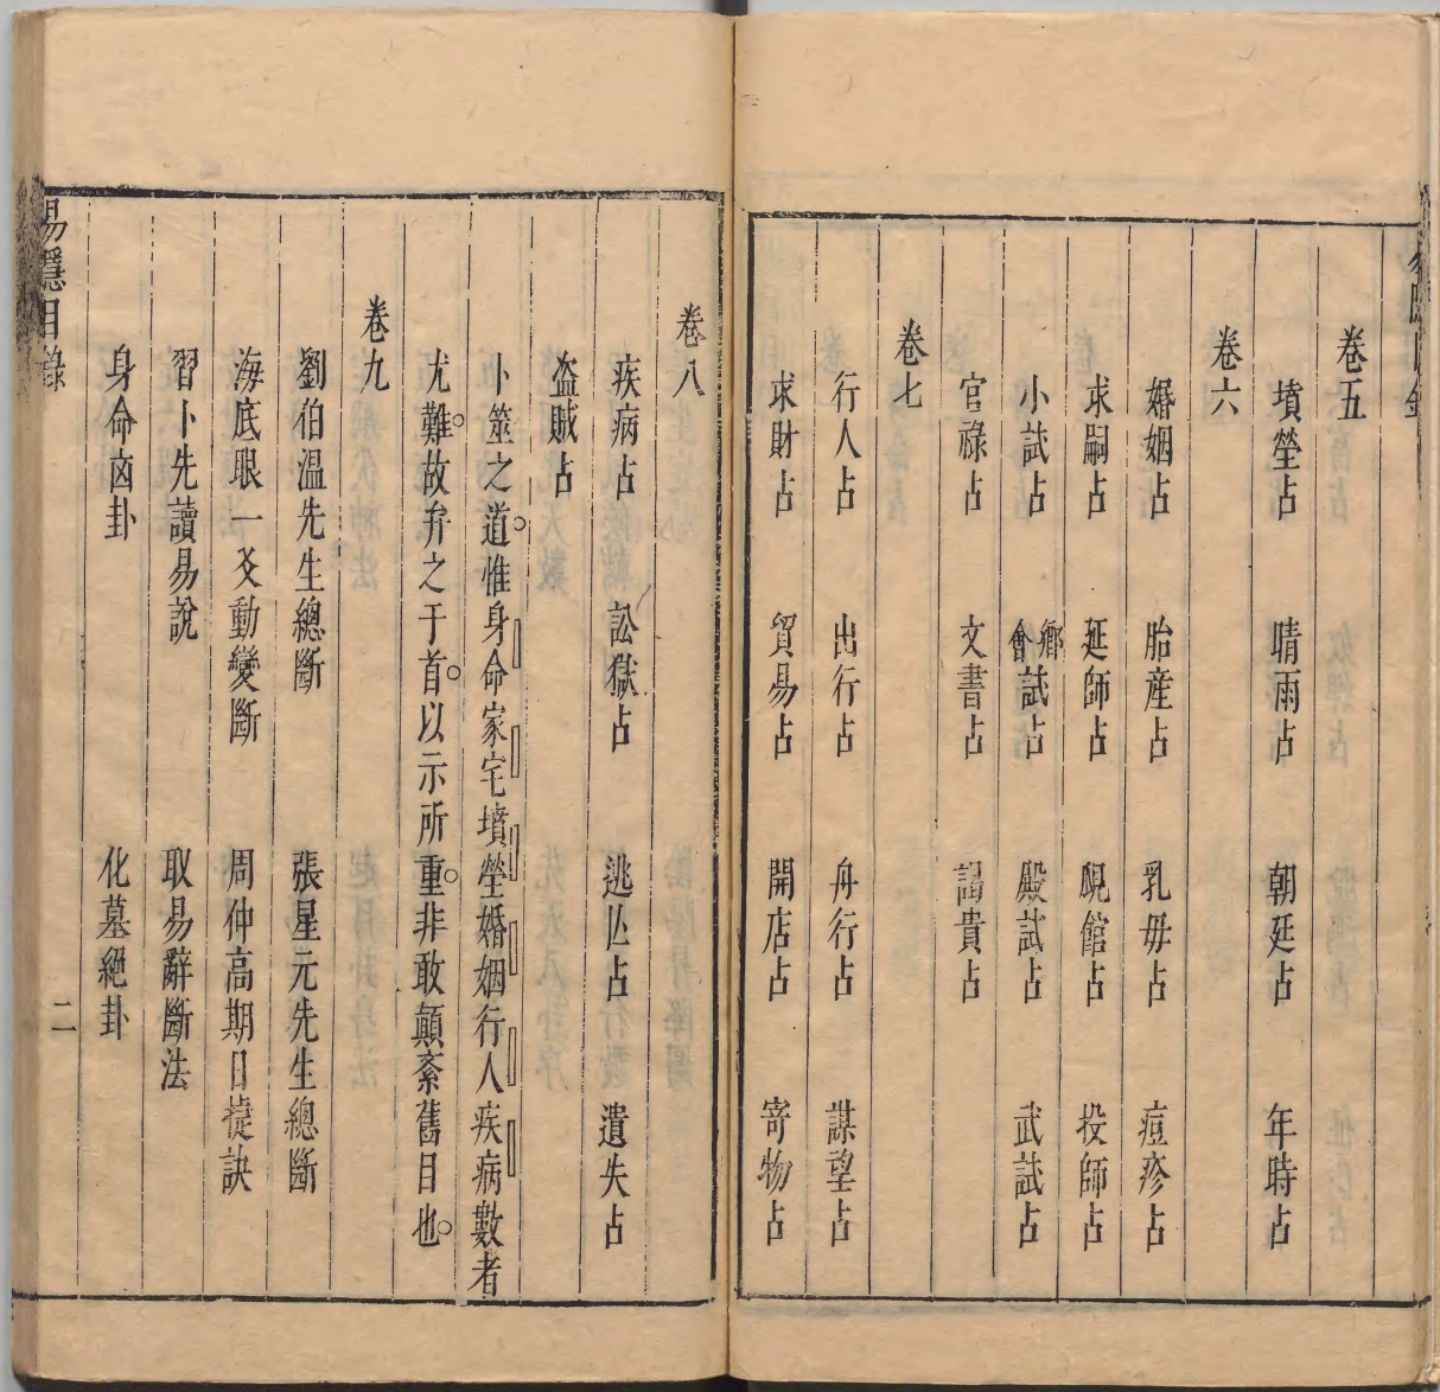 卷五
墳塋占 晴雨占 朝廷占 年時占
卷六
婚姻占 胎産占 乳母占 痘疹占
求嗣占 延師占 覘館占 投師占
小試占 鄉會試占 殿試占 武試占
官祿占 文書占 謁貴占
卷七
行人占 出行占 舟行占 謀望占
求財占 貿易占 開店占 寄物占
卷八
疾病占 訟獄占 逃亾占 遺失占
盗賊占
卜筮之道惟身命家宅墳塋婚姻行人疾病數者
尤難故弁之于首以示所重非敢顛紊舊目也
卷九
劉伯溫先生總斷 張星元先生總斷
海底眼一爻動變斷 周仲高期日㨗訣
習卜先讀易說 取易辭斷法
身命卤卦 化墓絕卦
易隱目錄
二